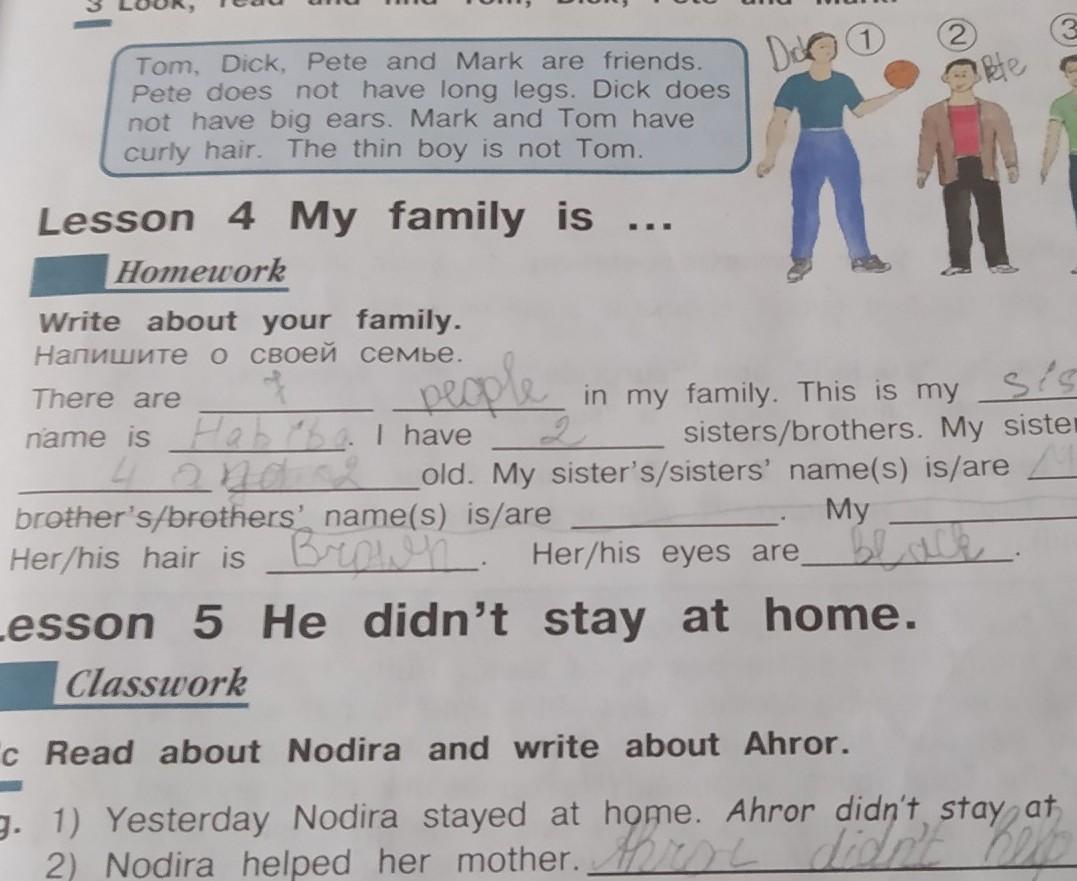 3 Look, read and find Tom, Dick, Pete and Mark.
Dick 1 2 Pete 3
Tom, Dick, Pete and Mark are friends.
Pete does not have long legs. Dick does
not have big ears. Mark and Tom have
curly hair. The thin boy is not Tom.
Lesson 4 My family is ...
Homework
Write about your family.
Напишите о своей семье.
There are 7 people in my family. This is my sis
name is Habiba. I have 2 sisters/brothers. My sister
4 old. My sister's/sisters' name(s) is/are
brother's/brothers' name(s) is/are . My
Her/his hair is Brown. Her/his eyes are black.
Lesson 5 He didn't stay at home.
Classwork
c Read about Nodira and write about Ahror.
g. 1) Yesterday Nodira stayed at home. Ahror didn't stay at
2) Nodira helped her mother. Ahror didn't help